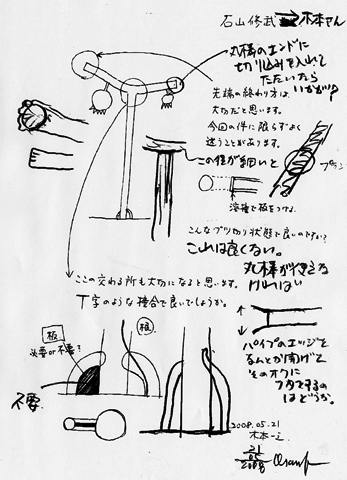 石山修武 → 木本さん
丸棒のエンドに
切り込みを入れて
たたいたら
いかがか?
先端の終わり方は、
大切だと思います。
今回の件に限らずよく
迷うことがあります。
この径が細いと
溶接で板をつける。
こんなブツ切り状態で良いのですか?
これは良くない。
丸棒ができる
ければ
ここの交わる所も大切になると思います。
T字のような接合で良いでしょうか。
板
必要or不要?
板
不要
パイプのエッジを
なんとか曲げて
そのオクに
フタをするの
はどうか。
2008.05.21
木本一之
21
05
2008